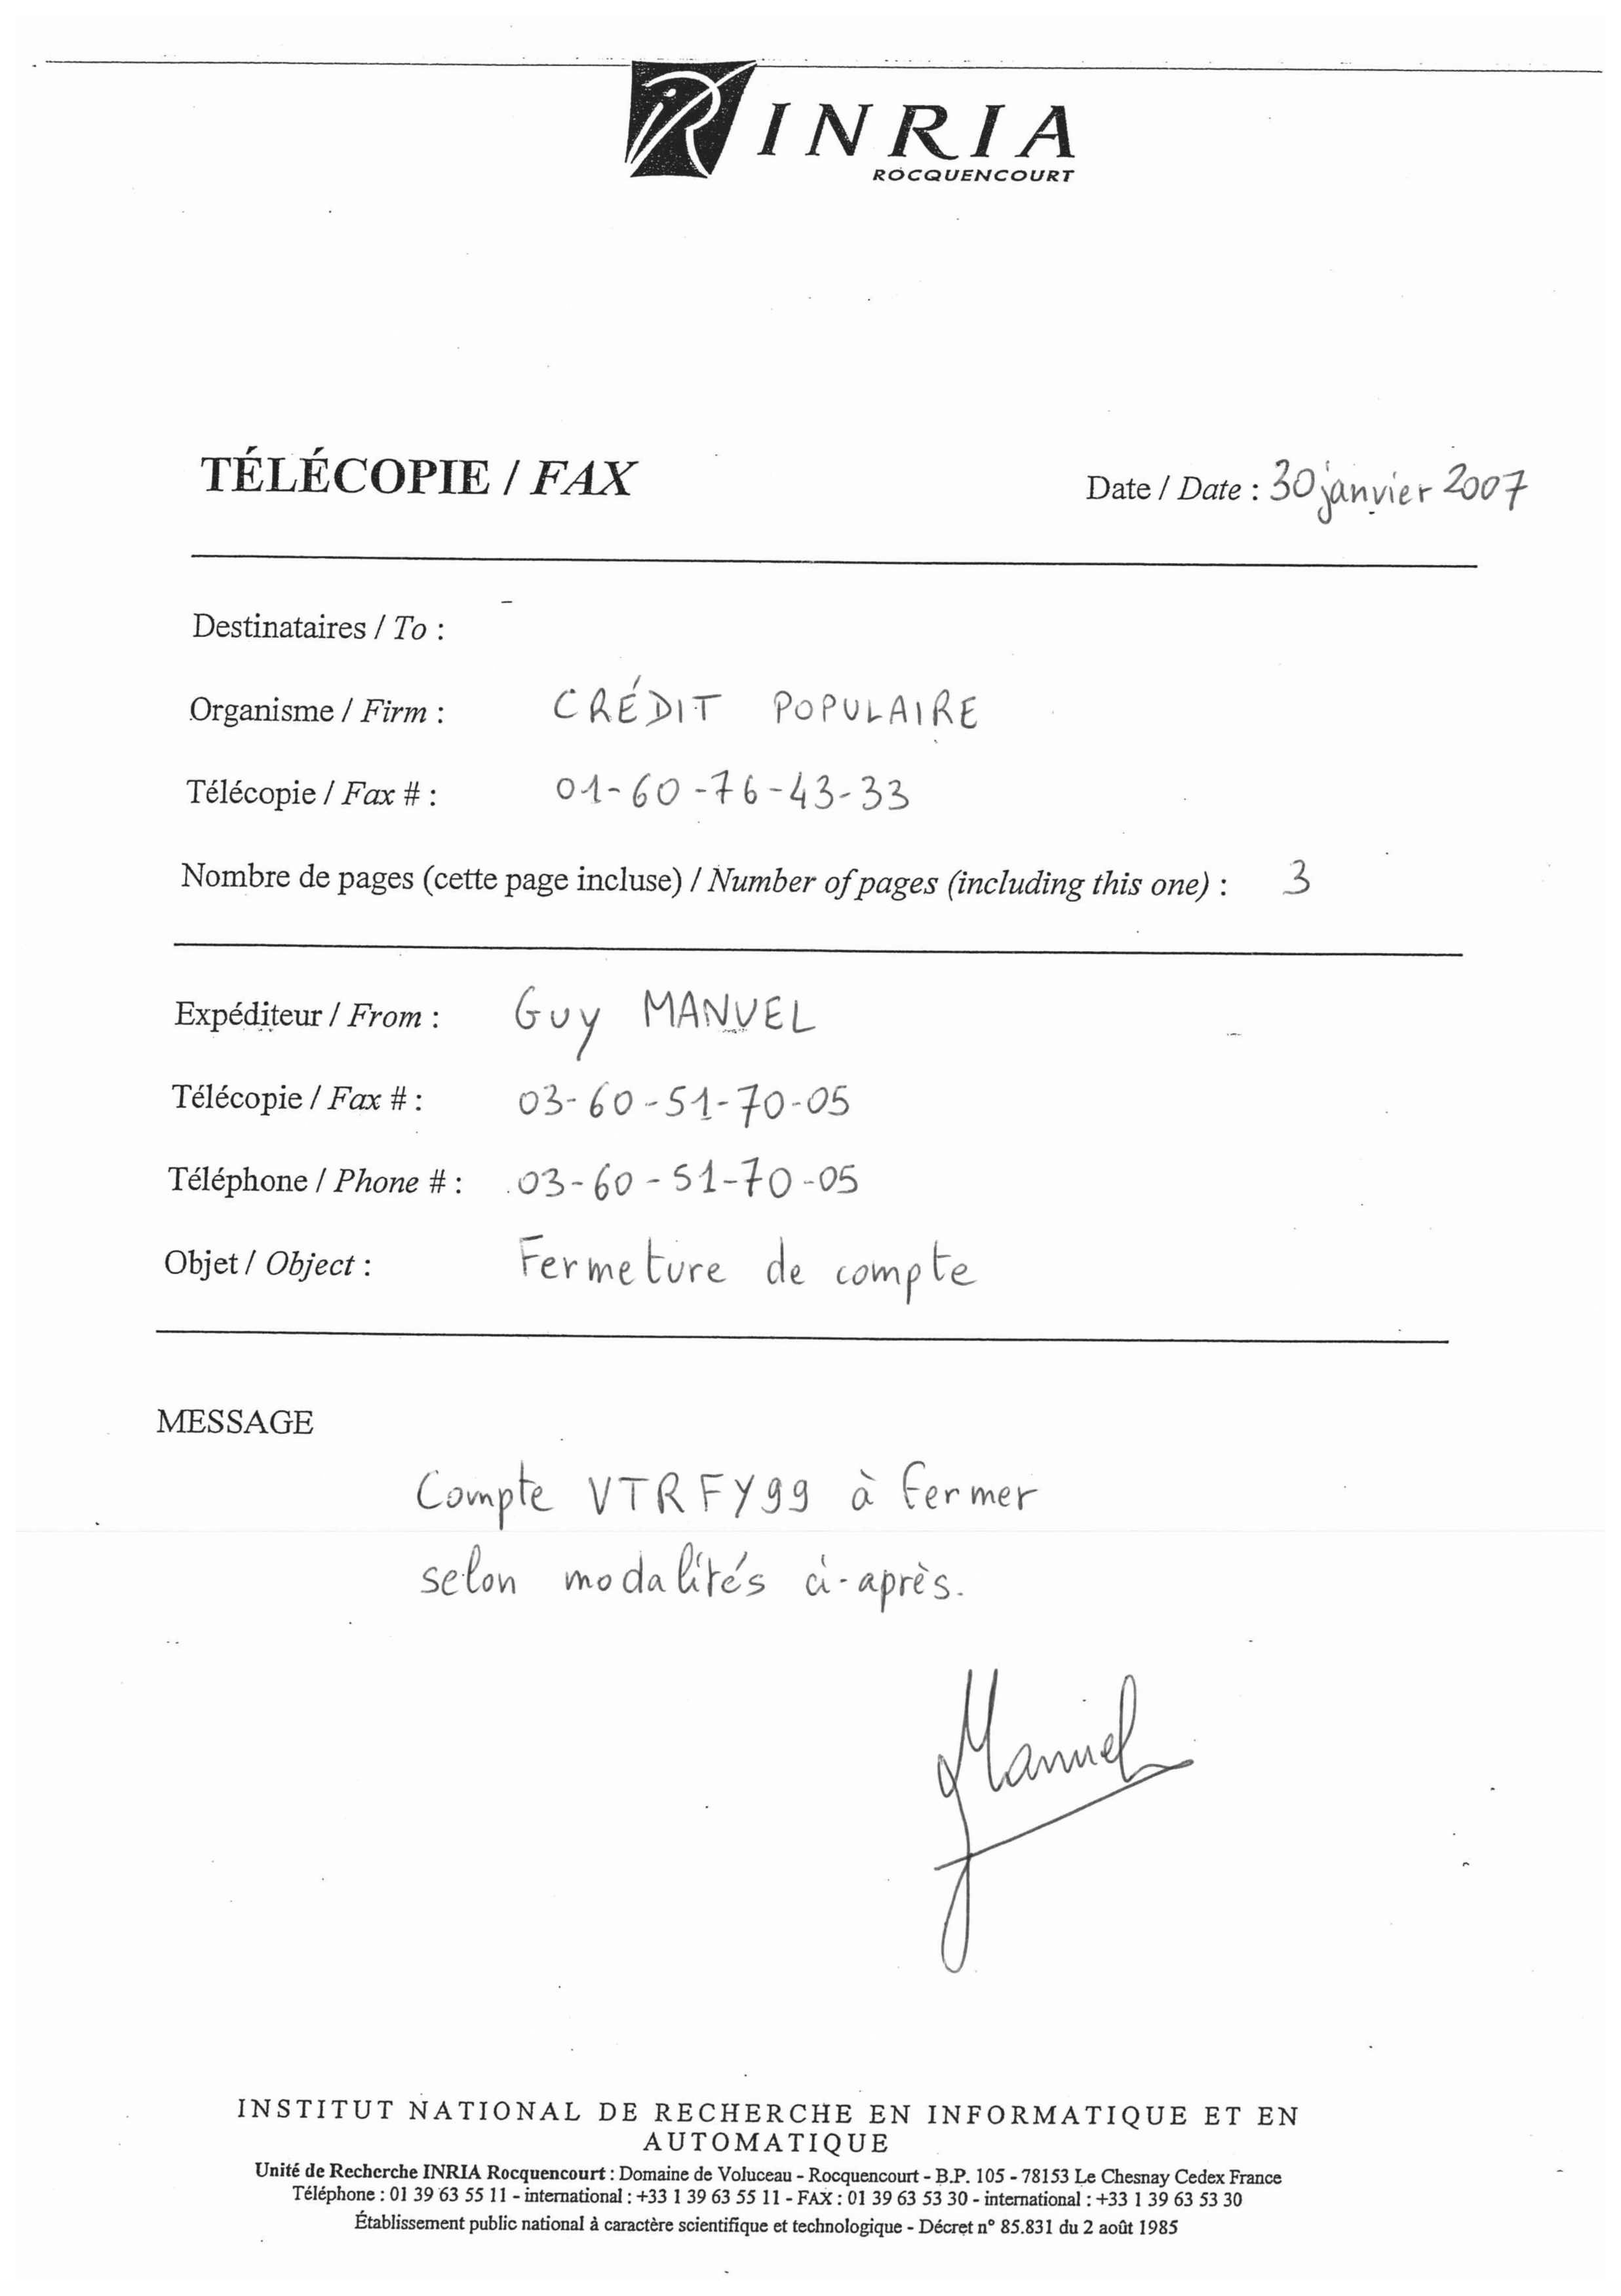 INRIA
ROCQUENCOURT
TÉLÉCOPIE / FAX
Date / Date : 30 janvier 2007
Destinataires / To :
Organisme / Firm : CRÉDIT POPULAIRE
Télécopie / Fax # : 01-60-76-43-33
Nombre de pages (cette page incluse) / Number of pages (including this one) : 3
Expéditeur / From : Guy MANUEL
Télécopie / Fax # : 03-60-51-70-05
Téléphone / Phone # : 03-60-51-70-05
Objet / Object : Fermeture de compte
MESSAGE
Compte VTRFY99 à fermer
selon modalités ci-après.
Manuel
INSTITUT NATIONAL DE RECHERCHE EN INFORMATIQUE ET EN
AUTOMATIQUE
Unité de Recherche INRIA Rocquencourt : Domaine de Voluceau - Rocquencourt - B.P. 105 - 78153 Le Chesnay Cedex France
Téléphone : 01 39 63 55 11 - international : +33 1 39 63 55 11 - FAX : 01 39 63 53 30 - international : +33 1 39 63 53 30
Établissement public national à caractère scientifique et technologique - Décret n° 85.831 du 2 août 1985